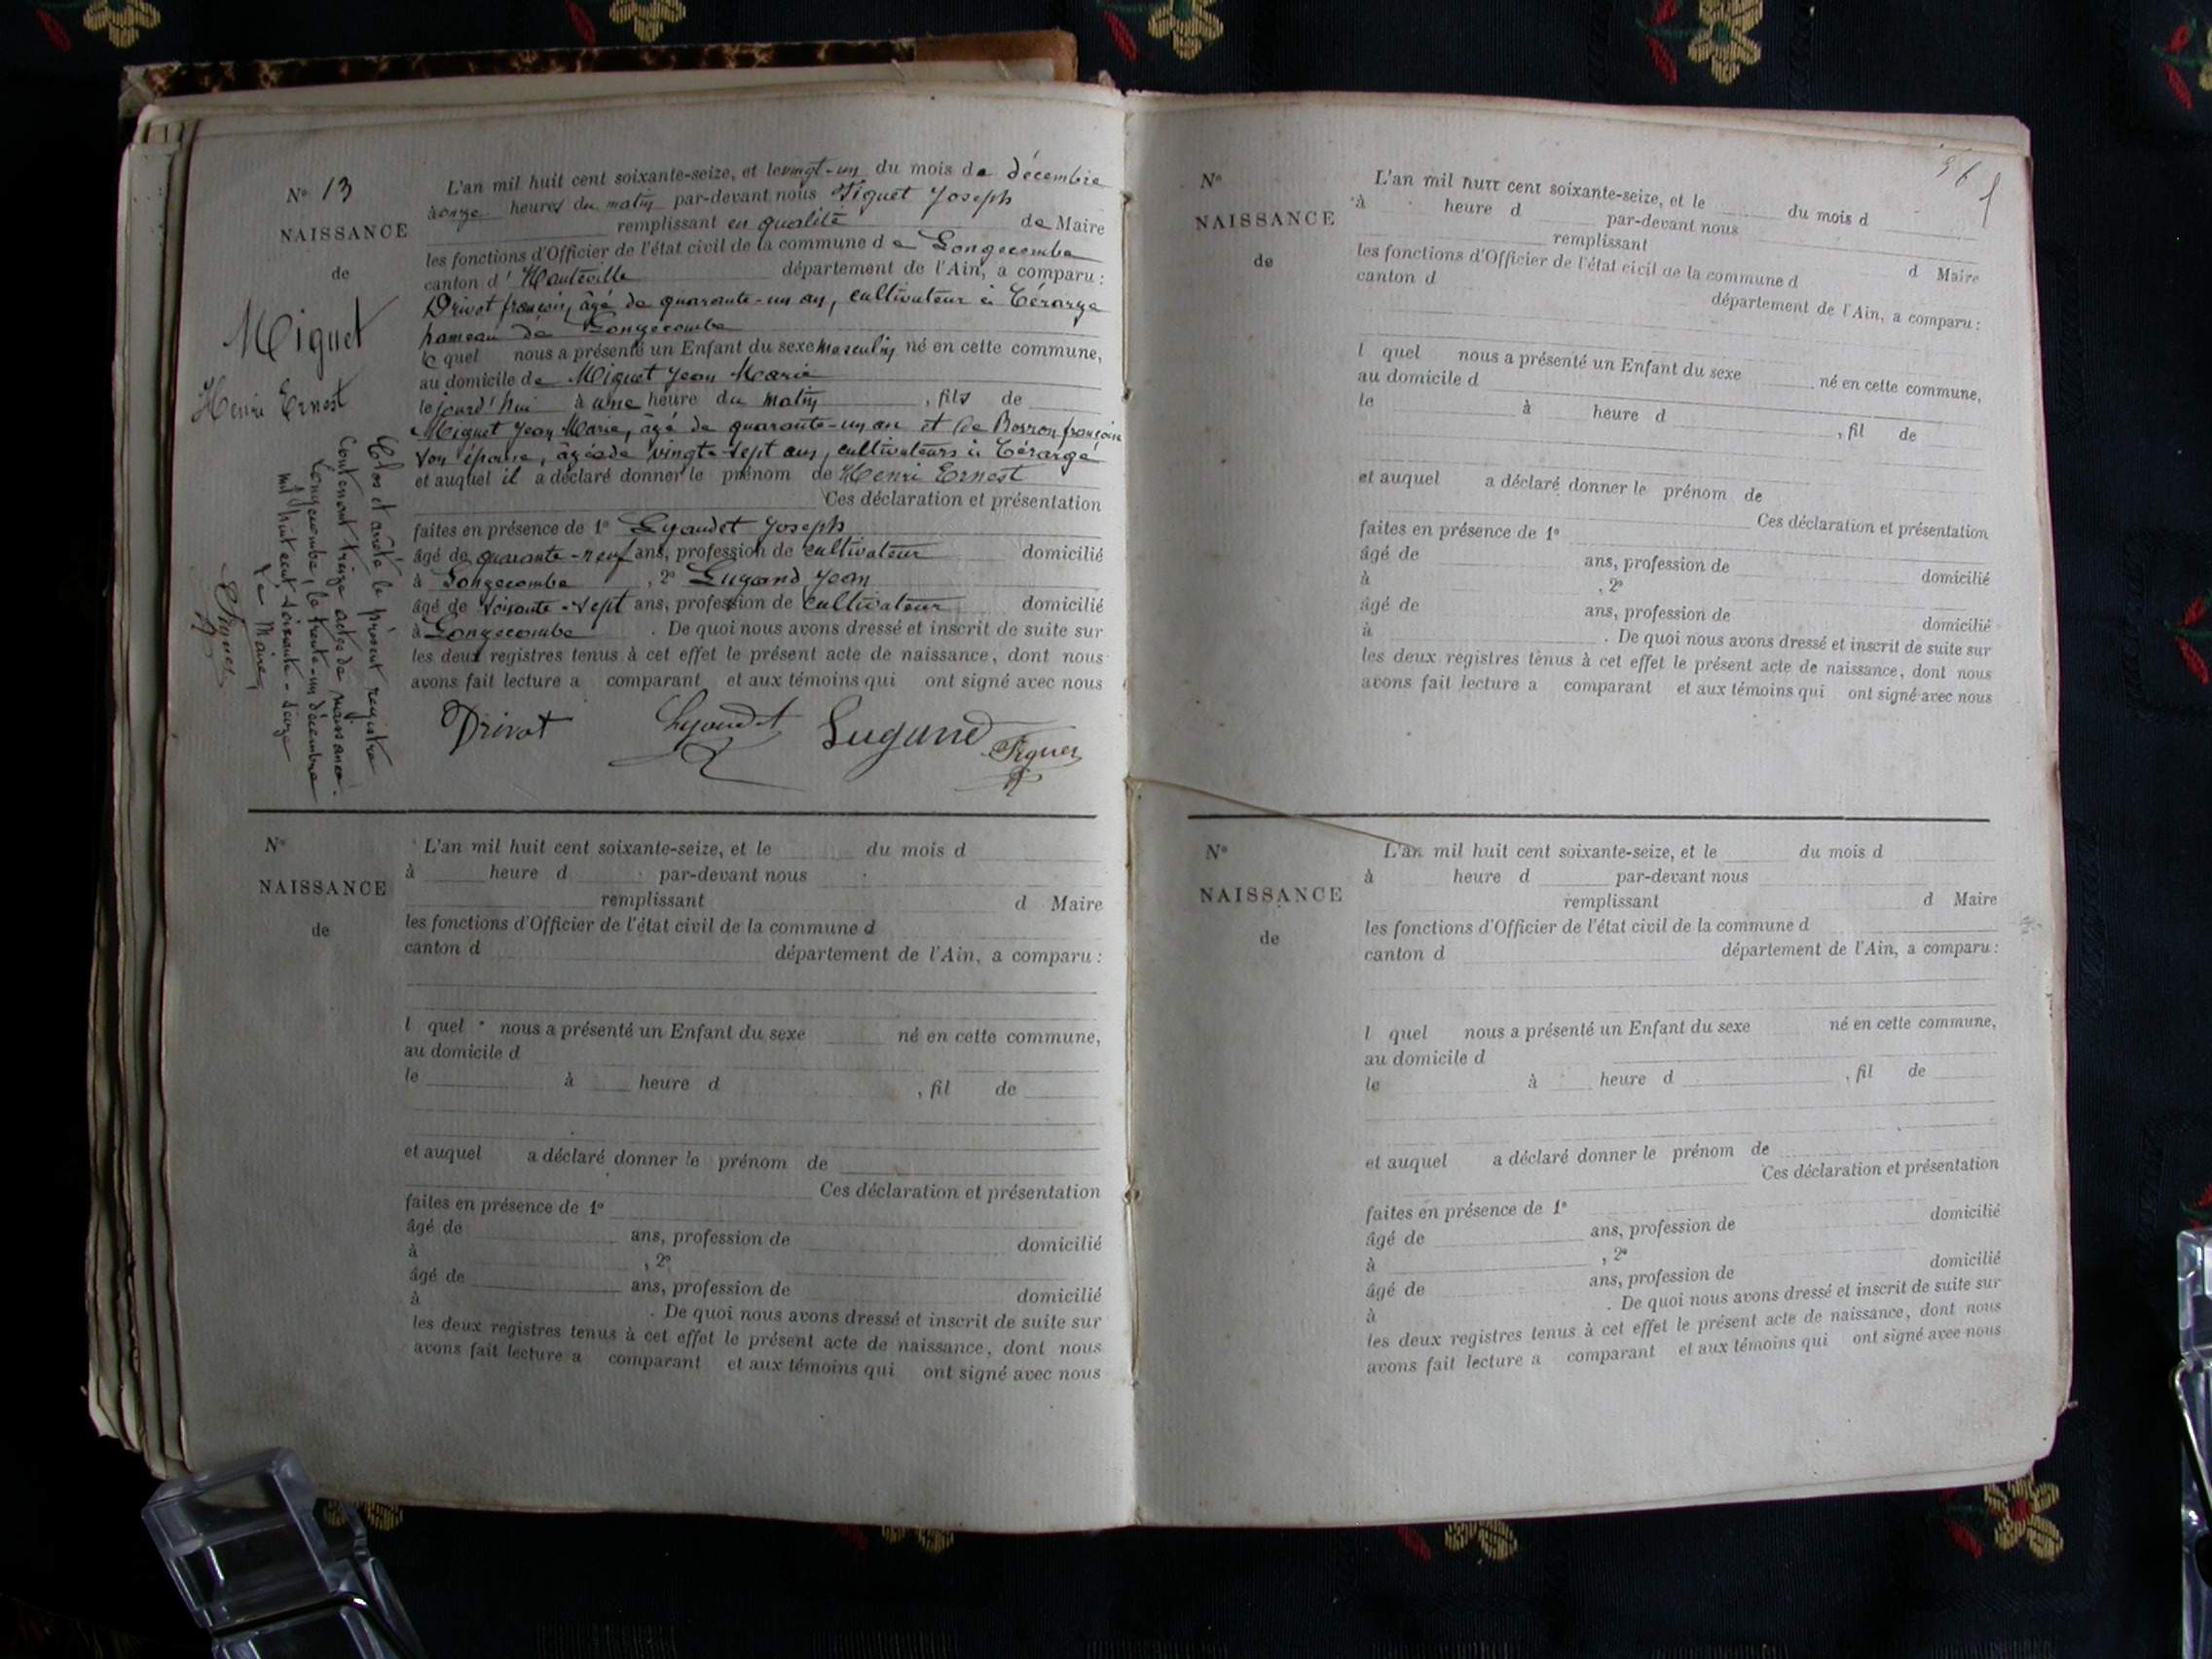 N° 13
NAISSANCE
de
Miguet
Henri Ernest
L'an mil huit cent soixante-seize, et le vingt-un du mois de décembre
à onze heures du matin par-devant nous Piguet Joseph
remplissant en qualité de Maire
les fonctions d'Officier de l'état civil de la commune de Longecombe
canton d'Hauteville département de l'Ain, a comparu :
Drivot françois, âgé de quarante-un an, cultivateur à
hameau de Longecombe
le quel nous a présenté un Enfant du sexe masculin né en cette commune,
au domicile de Miguet Jean Marie
le jourd'hui à une heure du matin, fils de
Miguet Jean Marie, âgé de quarante-un an et de françoise
son épouse, âgée de vingt-sept ans, cultivateurs à
et auquel il a déclaré donner le prénom de Henri Ernest
Ces déclaration et présentation
faites en présence de 1° Lyaudet Joseph
âgé de quarante-neuf ans, profession de cultivateur domicilié
à Longecombe, 2° Lugand Jean
âgé de soixante-sept ans, profession de cultivateur domicilié
à Longecombe. De quoi nous avons dressé et inscrit de suite sur
les deux registres tenus à cet effet le présent acte de naissance, dont nous
avons fait lecture a comparant et aux témoins qui ont signé avec nous
Drivot Lyaudet Lugand Piguet
Clos et arrêté le présent registre
contenant treize actes de naissance.
Longecombe, le trente-un décembre
mil huit cent soixante-seize
Le Maire,
Piguet
N°
NAISSANCE
de
L'an mil huit cent soixante-seize, et le du mois d
à heure d par-devant nous
remplissant d Maire
les fonctions d'Officier de l'état civil de la commune d
canton d département de l'Ain, a comparu :
l quel nous a présenté un Enfant du sexe né en cette commune,
au domicile d
le à heure d , fil de
et auquel a déclaré donner le prénom de
Ces déclaration et présentation
faites en présence de 1°
âgé de ans, profession de domicilié
à , 2°
âgé de ans, profession de domicilié
à . De quoi nous avons dressé et inscrit de suite sur
les deux registres tenus à cet effet le présent acte de naissance, dont nous
avons fait lecture a comparant et aux témoins qui ont signé avec nous
N°
NAISSANCE
de
L'an mil huit cent soixante-seize, et le du mois d
à heure d par-devant nous
remplissant d Maire
les fonctions d'Officier de l'état civil de la commune d
canton d département de l'Ain, a comparu :
l quel nous a présenté un Enfant du sexe né en cette commune,
au domicile d
le à heure d , fil de
et auquel a déclaré donner le prénom de
Ces déclaration et présentation
faites en présence de 1°
âgé de ans, profession de domicilié
à , 2°
âgé de ans, profession de domicilié
à . De quoi nous avons dressé et inscrit de suite sur
les deux registres tenus à cet effet le présent acte de naissance, dont nous
avons fait lecture a comparant et aux témoins qui ont signé avec nous
N°
NAISSANCE
de
L'an mil huit cent soixante-seize, et le du mois d
à heure d par-devant nous
remplissant d Maire
les fonctions d'Officier de l'état civil de la commune d
canton d département de l'Ain, a comparu :
l quel nous a présenté un Enfant du sexe né en cette commune,
au domicile d
le à heure d , fil de
et auquel a déclaré donner le prénom de
Ces déclaration et présentation
faites en présence de 1°
âgé de ans, profession de domicilié
à , 2°
âgé de ans, profession de domicilié
à . De quoi nous avons dressé et inscrit de suite sur
les deux registres tenus à cet effet le présent acte de naissance, dont nous
avons fait lecture a comparant et aux témoins qui ont signé avec nous